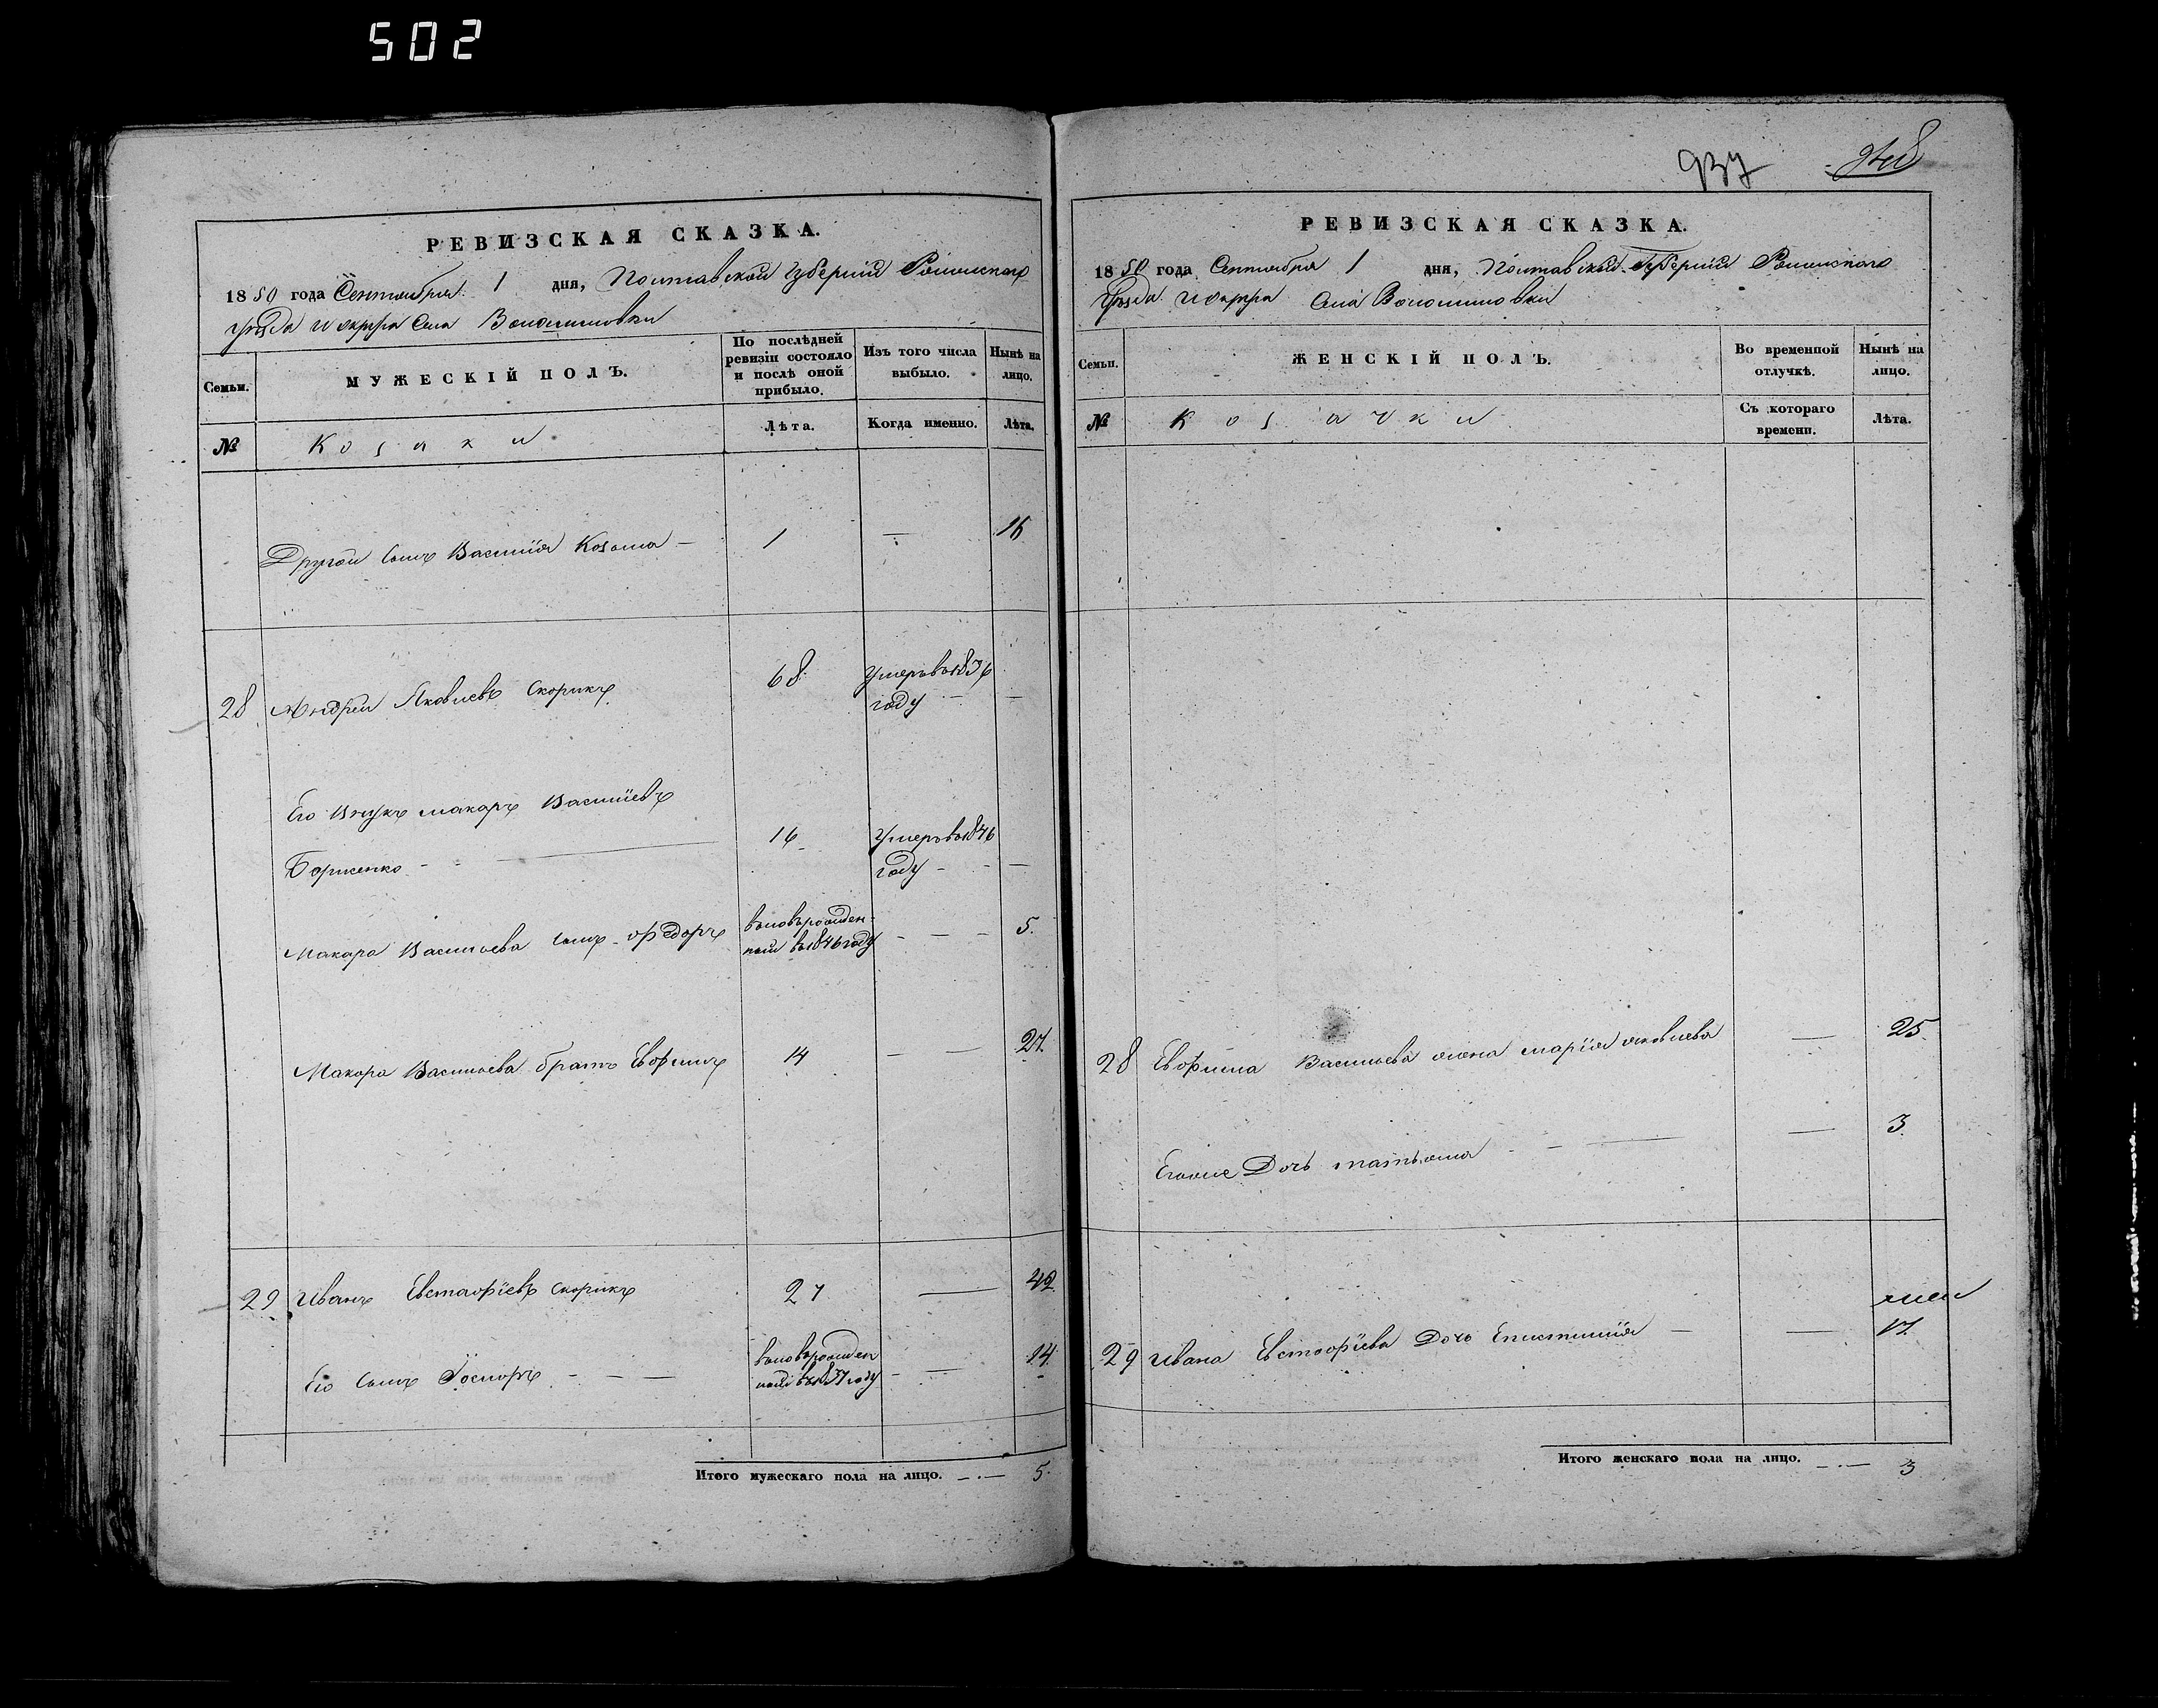 502
937
948
РЕВИЗСКАЯ СКАЗКА.
1850 года Сентября 1 дня, Полтавской Губернии Роменского
уезда и округа Села Волошиновки
Семьи.
МУЖЕСКІЙ ПОЛЪ.
По послѣдней ревизіи состояло и послѣ оной прибыло.
Изъ того числа выбыло.
Нынѣ на лицо.
№
Козаки
Лѣта.
Когда именно.
Лѣта.
Другой сынъ Василія Козьма — 1 — 16
28 Андрей Яковлевъ Скорикъ 68 Умеръ въ 1836
году — —
Его внукъ Макаръ Василіевъ
Борженко — — 16 Умеръ въ 1846
году — — —
Макара Васильева сынъ Федоръ вновьрожден-
ный въ 1846 году — — — 5.
Макара Васильева братъ Евфимъ 14 — — 27.
29 Иванъ Евстафіевъ Скорикъ 27 — 42.
Его сынъ Іосифъ — — — вновьрожден
ный въ 1837 году — — 14.
Итого мужескаго пола на лицо. — 5.
РЕВИЗСКАЯ СКАЗКА.
1850 года Сентября 1 дня, Полтавской Губернии Роменского
уезда и округа Села Волошиновки
Семьи.
ЖЕНСКІЙ ПОЛЪ.
Во временной отлучкѣ.
Нынѣ на лицо.
№
Козачки
Съ котораго времени.
Лѣта.
28 Евфима Васильева жена Марія Яковлева — 25.
Егоже Дочь Татьяна — — — 3.
29 Ивана Евстафіева Дочь Епистимія — — 17.
Итого женскаго пола на лицо. — 3